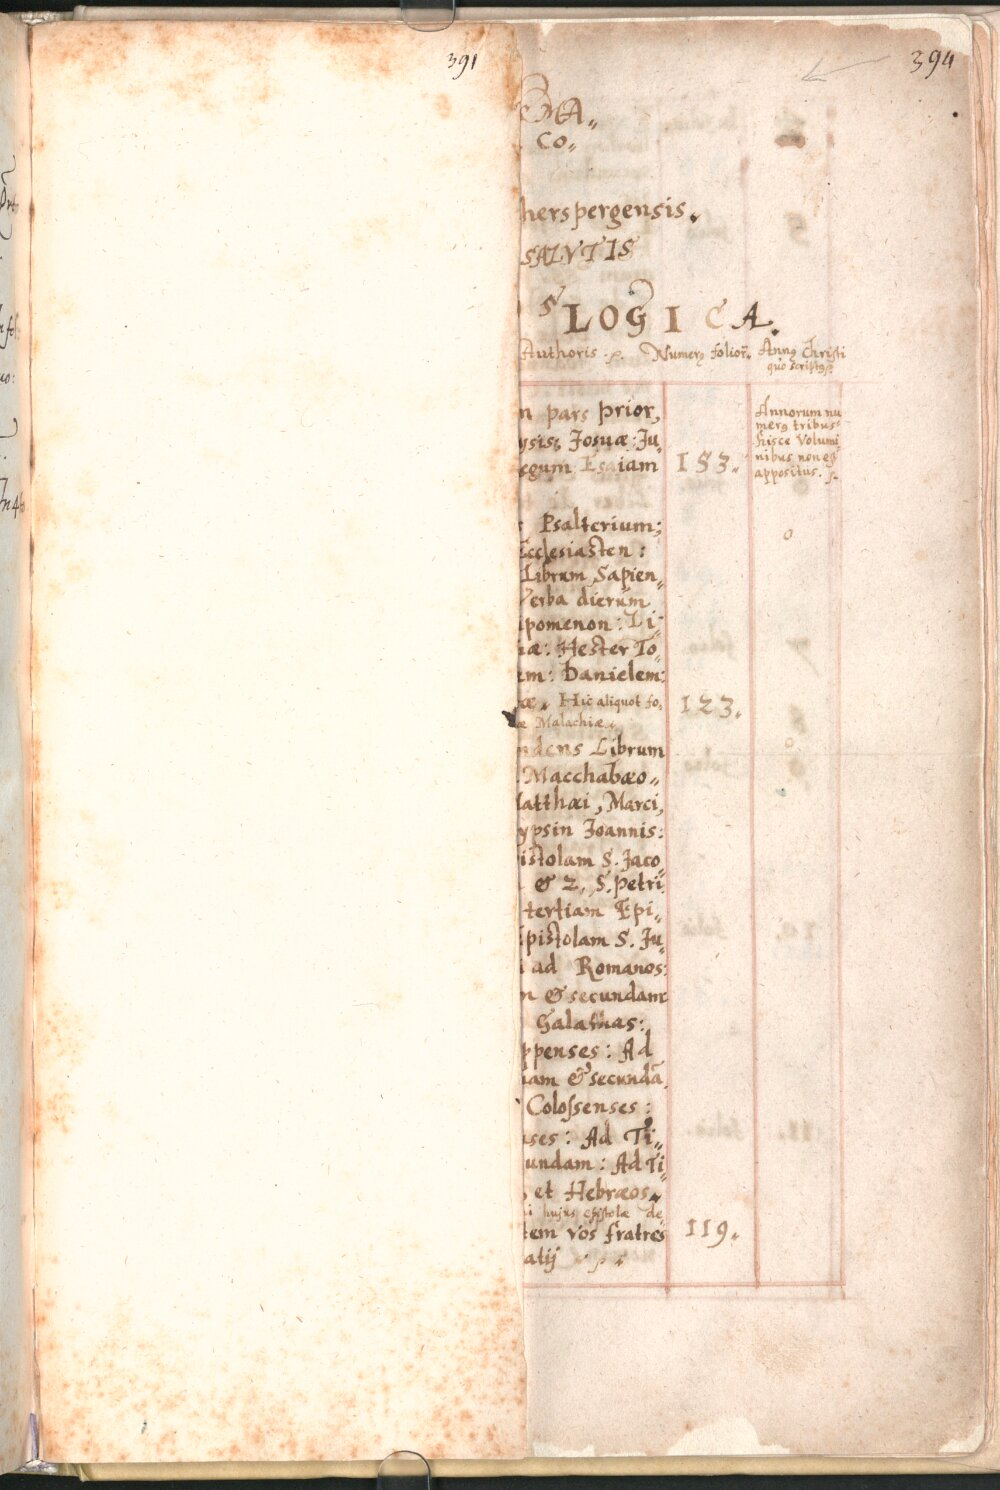 391
394
EMA„
CO„
herspergensis.
SALVTIS
LOGICA.
Authoris
Numerꝰ folior̄.
Annꝰ Christi
quo scriptꝰ
n pars prior,
ysis: Josuæ: Ju„
egum Esaiam
153.
Annorum nu
merꝰ tribus
hisce Volumi
nibus non est
appositus.
s Psalterium;
Ecclesiasten:
Librum Sapien„
Verba dierum
ipomenon: Li„
næ: Hester To„
em: Danielem:
æ. Hic aliquot fo„
æ Malachiæ.
123.
ndens Librum
Macchabæo„
Matthæi, Marci,
ypsin Joannis:
istolam S. Jaco„
& 2. S. Petri:
tertiam Epi„
Epistolam S. Ju„
i ad Romanos:
m & secundam
Galathas:
ppenses: Ad
iam & secundā
Colossenses:
nses: Ad Ti„
undam: Ad Ti„
, et Hebræos.
i hujus epistolæ de
tem vos fratres
atij
119.